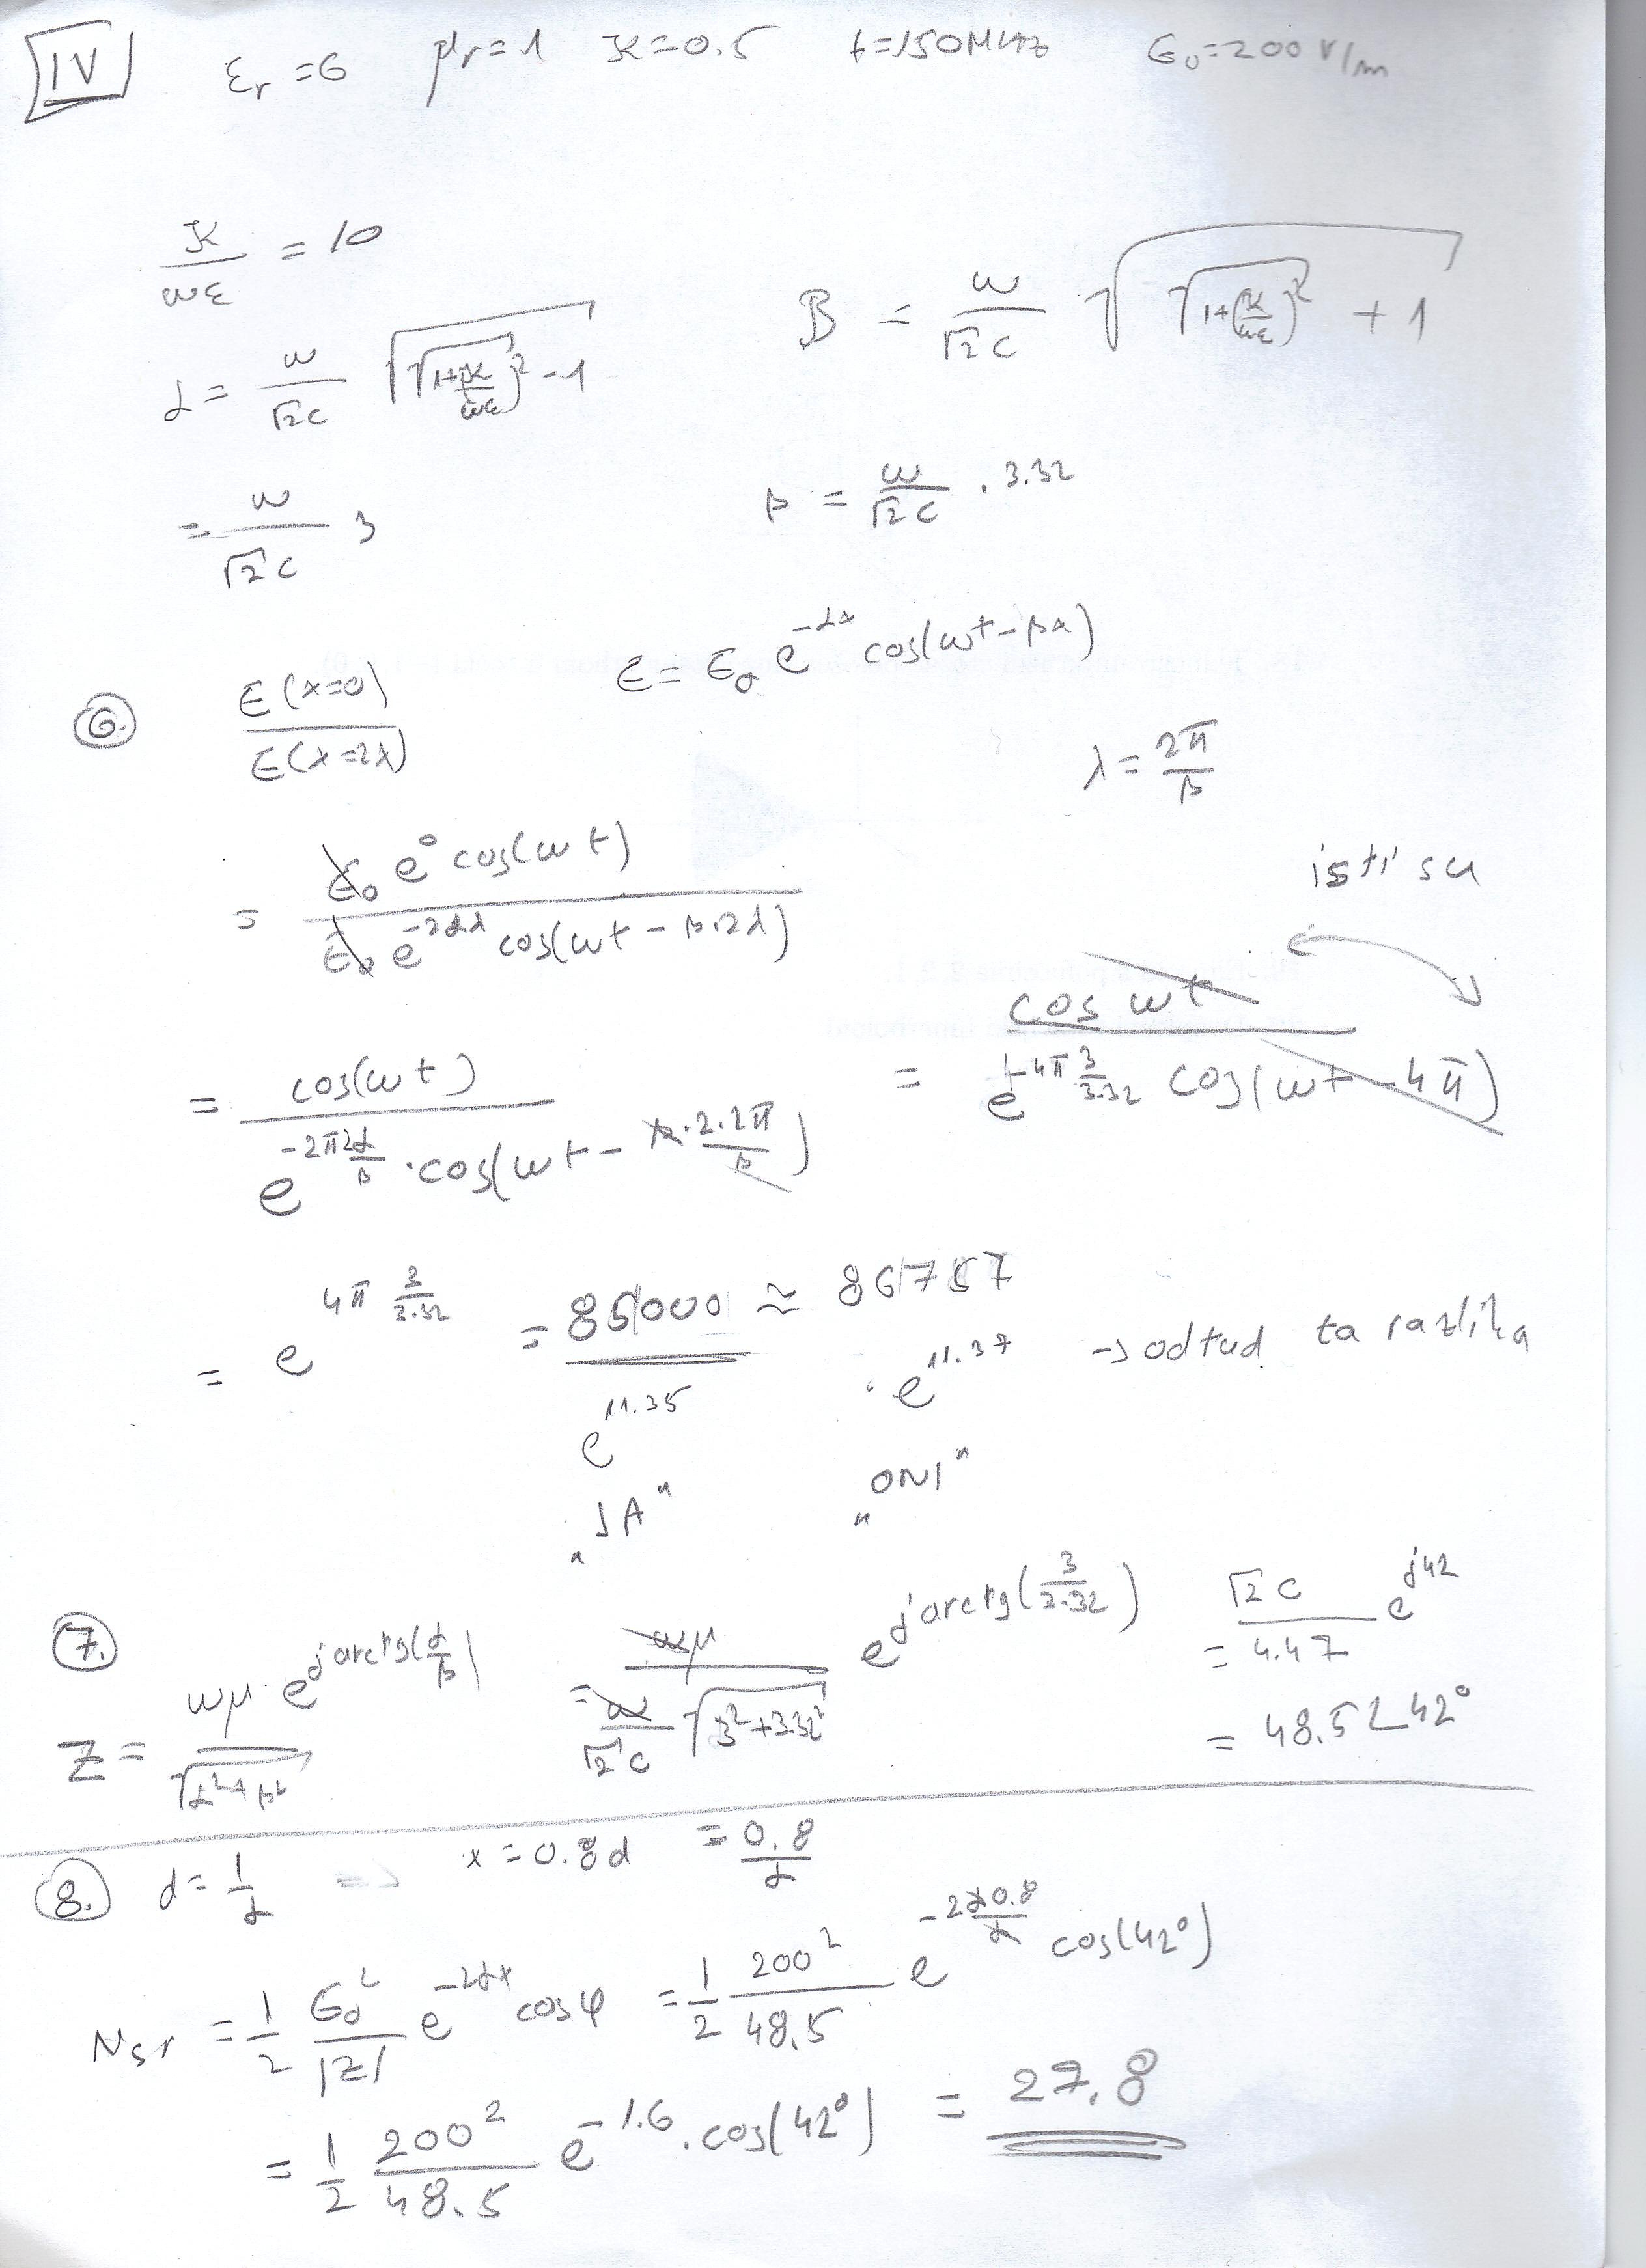 IV εr = 6 μr = 1 ϰ = 0.5 f = 150 MHz E₀ = 200 V/m
ϰ/ωε = 10
α = ω/(√2 c) √(√(1+(ϰ/ωε)²) - 1) β = ω/(√2 c) √(√(1+(ϰ/ωε)²) + 1)
= ω/(√2 c) 3 β = ω/(√2 c) · 3.32
6. E(x=0)/E(x=2λ) E = E₀ e^(-αx) cos(ωt-βx)
λ = 2π/β
= E₀ e⁰ cos(ωt) / E₀ e^(-2αλ) cos(ωt - β·2λ)
isti su
= cos(ωt) / e^(-2π2α/β) · cos(ωt - β·2·2π/β) = cos ωt / e^(-4π 3/3.32) cos(ωt - 4π)
= e^(4π 3/3.32) = 85000 ≈ 86757
e^11.35 e^11.37 → odtud ta razlika
„JA" „ONI"
7. Z = ωμ · e^(j arctg(α/β)) / √(α²+β²) = ωμ / (ω/(√2 c) √(3²+3.32²)) e^(j arctg(3/3.32)) = √2 c/4.47 e^(j42)
= 48.5 ∠42°
8. d = 1/α => x = 0.8d = 0.8/α
Nsr = 1/2 E₀²/|Z| e^(-2αx) cos φ = 1/2 200²/48.5 e^(-2α0.8/α) cos(42°)
= 1/2 200²/48.5 e^(-1.6) · cos(42°) = 27.8